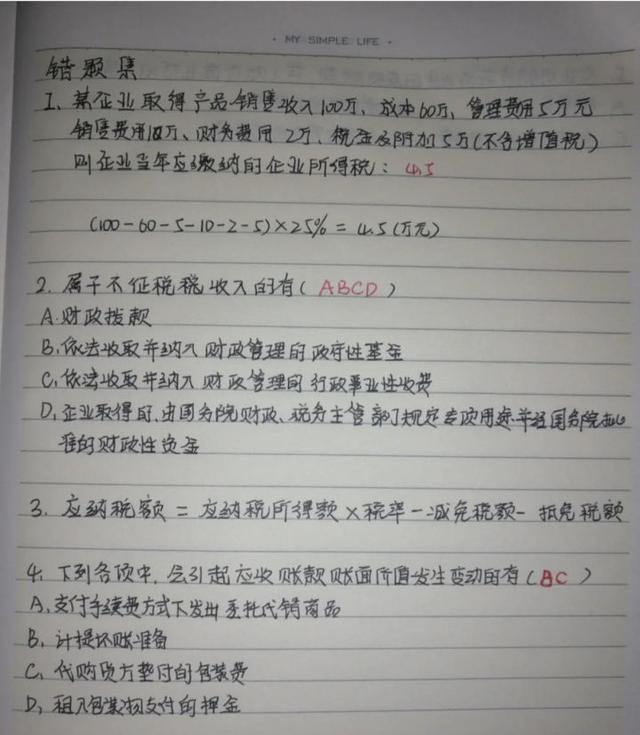 · MY SIMPLE LIFE ·
错题集
1、某企业取得产品销售收入100万、成本60万、管理费用5万元
销售费用10万、财务费用 2万、税金及附加5万(不含增值税)
则企业当年应缴纳的企业所得税：4.5
(100-60-5-10-2-5)×25% = 4.5(万元)
2、属于不征税税收入的有( ABCD )
A.财政拨款
B、依法收取并纳入财政管理的政府性基金
C、依法收取并纳入财政管理的行政事业性收费
D、企业取得的、由国务院财政、税务主管部门规定专项用途并经国务院批
准的财政性资金
3、应纳税额 = 应纳税所得额×税率-减免税额-抵免税额
4、下列各项中，会引起应收账款账面价值发生变动的有( BC )
A、支付手续费方式下发出委托代销商品
B、计提坏账准备
C、代购货方垫付的包装费
D、租入包装物支付的押金